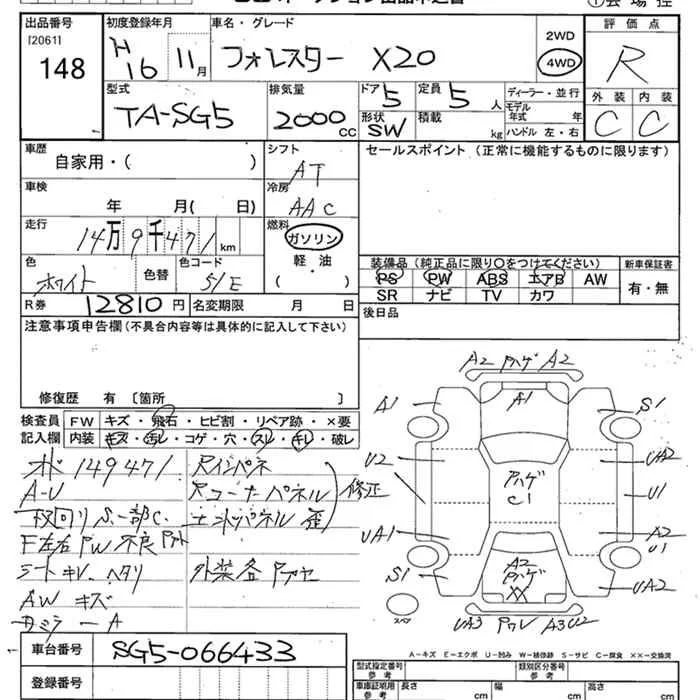 出品番号 初度登録年月 車名・グレード 評価点
[2061]
148 H16 11月 フォレスター X20 2WD 4WD R
型式 排気量 ドア 定員 ディーラー・並行 外装 内装
TA-SG5 2000CC 5 5人 モデル年式 年 C C
形状 SW 積載 kg ハンドル 左・右
車歴 シフト セールスポイント (正常に機能するものに限ります)
自家用・( ) AT
車検 冷房
年 月( 日) AAC
走行 燃料
14万9千471km ガソリン
色 色替 色コード 軽・油
ホワイト 51E ( ・ )
装備品 (純正品に限り○をつけてください) 新車保証書
PS PW ABS エアB AW 有・無
SR ナビ TV カワ
R券 12810円 名変期限 月 日
後日品
注意事項申告欄 (不具合内容等は具体的に記入して下さい)
修復歴 有 〔箇所 〕
検査員 FW キズ・飛石・ヒビ割・リペア跡・×要
記入欄 内装 キズ・汚レ・コゲ・穴・スレ・キレ・破レ
149471 Rインパネ
A-U Rコーナーパネル 修正
下回りS一部C エンドパネル 歪
F左右PW不良
シートキレ、ヘタリ
AW キズ
A
A2 Pハゲ A2
A1 A1 S1
U2 Pハゲ UA2
C1 U1
UA1 A2
U1
S1 A2 UA2
Pハゲ
XX
スペア
UA3 A3 U2
A-キズ E-エクボ U-凹み W-補修跡 S-サビ C-腐食 XX-交換済
車台番号 SG5-066433
登録番号
型式指定番号 参考 類別区分番号 参考
車庫証明用 参考 長さ cm 幅 cm 高さ cm